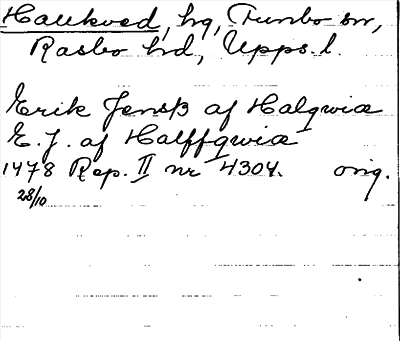 Haukved, hg, Tunbo sn,
Rasbo hd, Upps. l.
Erik Jenss af Halqwia
E. J. af Halffqwia
1478 Rep. II nr 4304. orig.
28/10